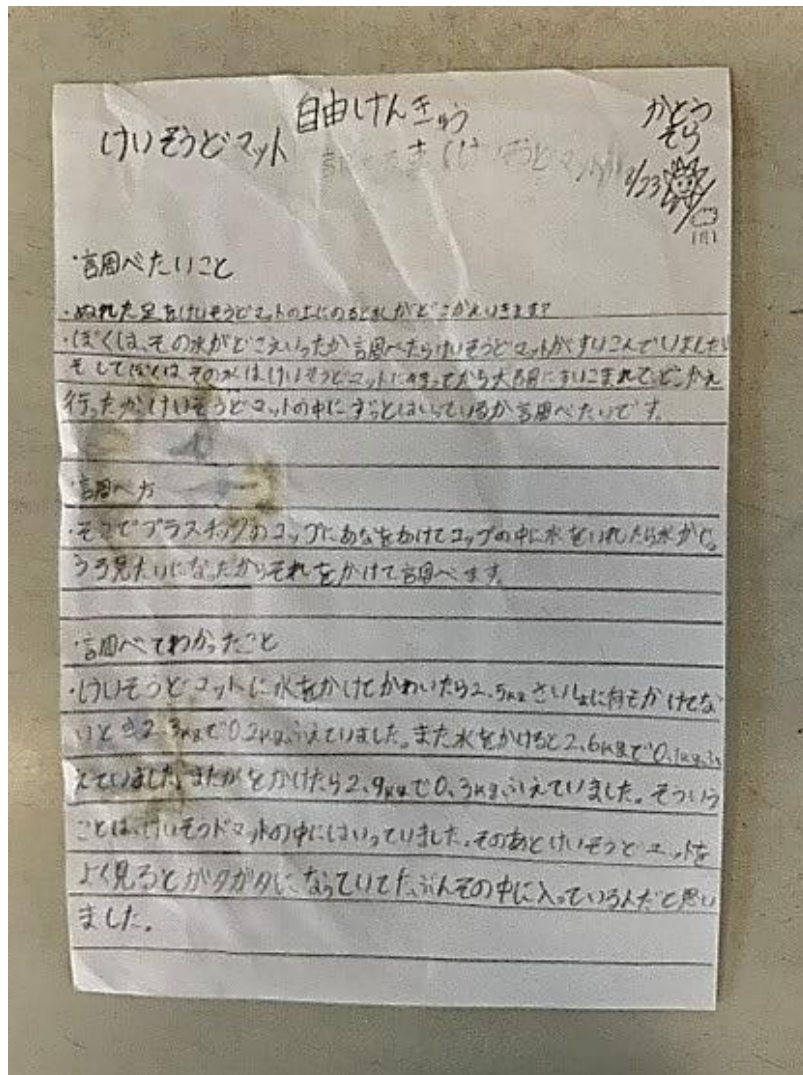 自由けんきゅう
けいそうどマット
かとう
そら
8/23
・調べたいこと
・ぬれた足をけいそうどマットの上にのると水がどこかえいきます?
・ぼくは、その水がどこえいったか調べたらけいそうどマットがすいこんでいました。
そしてぼくは、その水はけいそうどマットに すいこまれて、どこかえ
行ったかけいそうどマットの中にずっとはいっているか調べたいです。
・調べ方
・そこでプラスチックのコップにあなをあけてコップの中に水をいれたら水がじょ
うろ見たいになったからそれをかけて調べます。
・調べてわかったこと
・けいそうどマットに水をかけてかわいたら2.5kgさいしょに何もかけてな
いとき2.3kgで0.2kgふえていました。また水をかけると2.6kgで0.1kgふ
えていました。また水をかけたら2.9kgで0.3kgふえていました。そういう
ことは、けいそうドマットの中にはいっていました。そのあとけいそうどマットを
よく見るとガタガタになっていてたぶんその中に入っているんだと思い
ました。